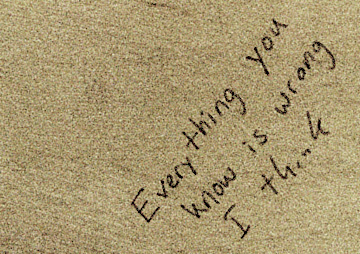 Everything you
know is wrong
I think